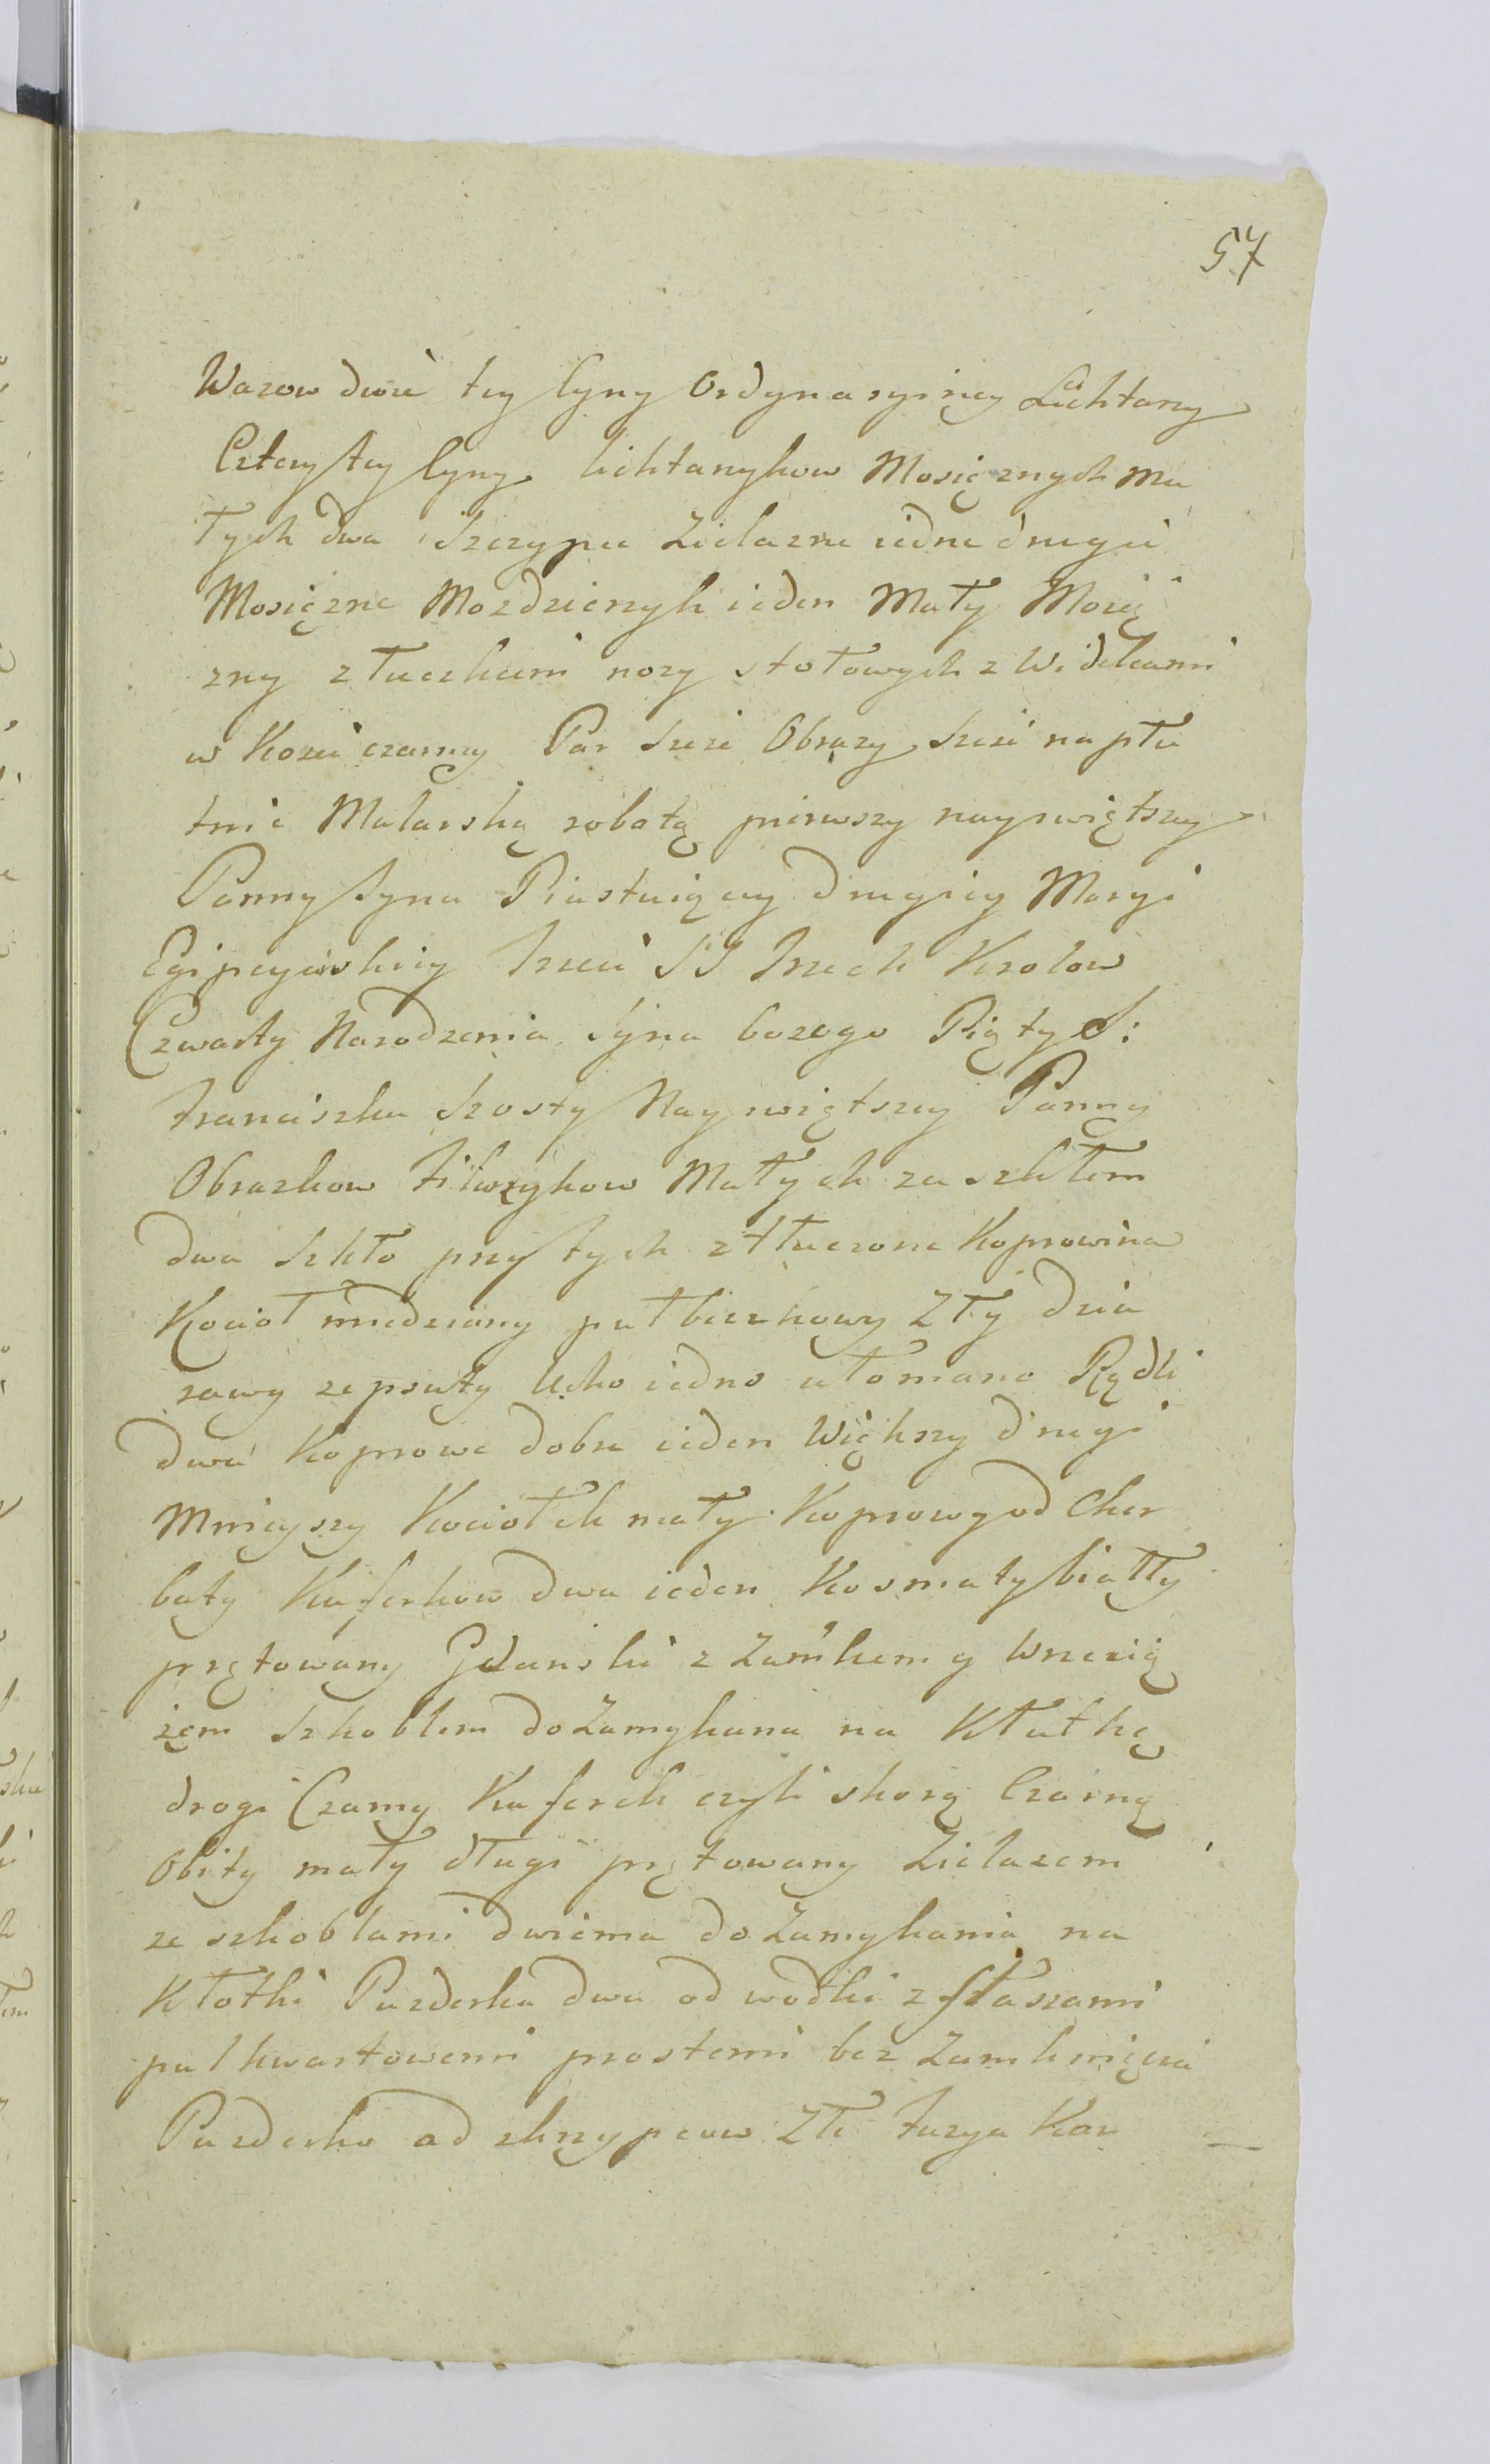 57
Wazow dwie tey Cyny Ordynaryiney Lichtarzy
Cztery tey Cyny lichtarzykow Mosięznych ma
łych dwa Szczypce Zielazne iedne drugie
Mosięzne Mozdzierzyk ieden Mały Mosię
zny z tłuczkiem nozy stołowych z Widelcami
w Kosci czarney Par szesc Obrazy szesc na płu
tnie Malarską robotą pierwszy nayswiętszey
Panny Syna Piastuiącey drugiey Maryi
Egipcyiwskiey Trzeci SS Trzech Krolow
Czwarty Narodzenia Syna bozego Piąty S:
Franciszka Szosty Nayswiętszey Panny
Obrazkow Małych za szkłem
dwa Szkło przy tych ztłuczone Koprowina
Kocioł miedziany puł beczkowy Zły dziu
rawy zepsuty Ucho iedno ułomane Rądli
dwa Koprowe dobre ieden Większy drugi
Mnieyszy Kociołek mały Koprowy od Cher
baty Kuferkow dwa ieden Kosmaty biały
prętowany Gdanski z Zamkem y wrzecią
zem Szkoblem do Zamykana na Kłutkę
drogi Czarny Kuferek czyli skorą Czarną
Obity mały długi prętowany Zielazem
ze szkoblami dwiema do Zamykania na
Kłotki Puzderka dwa od wodki z flaszami
pul kwartowemi prostemi bez Zamknięcia
Puzderko od skrzypcow Złe Fuzya Kar